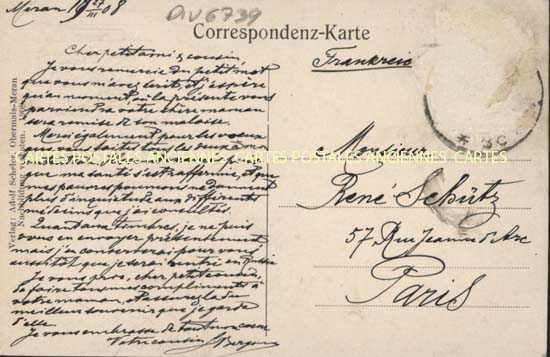 Meran 27/III 08
DIV 6739
Correspondenz-Karte
Frankreich
Cher petit ami & cousin,
Je vous remercie du petit mot
que vous m'avez écrit, et j'espère
qu'au moment où la présente vous
parviendra votre chère maman
sera remise de son malaise.
Merci également pour les vœux
que vous faites tous les deux
que ma santé s'est affermie, et que
mes pauvres poumons ne donnent
plus d'inquiétude aux différents
médecins que j'ai consultés.
Quant aux timbres, je ne puis
vous en envoyer présentement
mais j'en conserverai pour vous
aussitôt que je serai rentré en Russie
Je vous prie, cher petit cousin,
de faire tous mes compliments à
votre maman, et assurez-la du
meilleur souvenir que je garde
d'elle.
Je vous embrasse de tout mon cœur
Votre cousin
Monsieur
René Schütz
57 Rue Jeanne d'Arc
Paris
Verlag: Adolf Scheler, Obermais-Meran
Nachbildung verboten.
CARTES POSTALES ANCIENNES CARTES POSTALES ANCIENNES CARTES